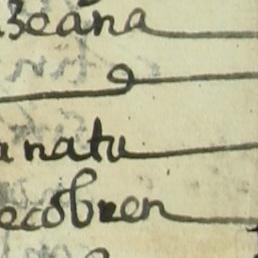 zeana
a natu
ecobren